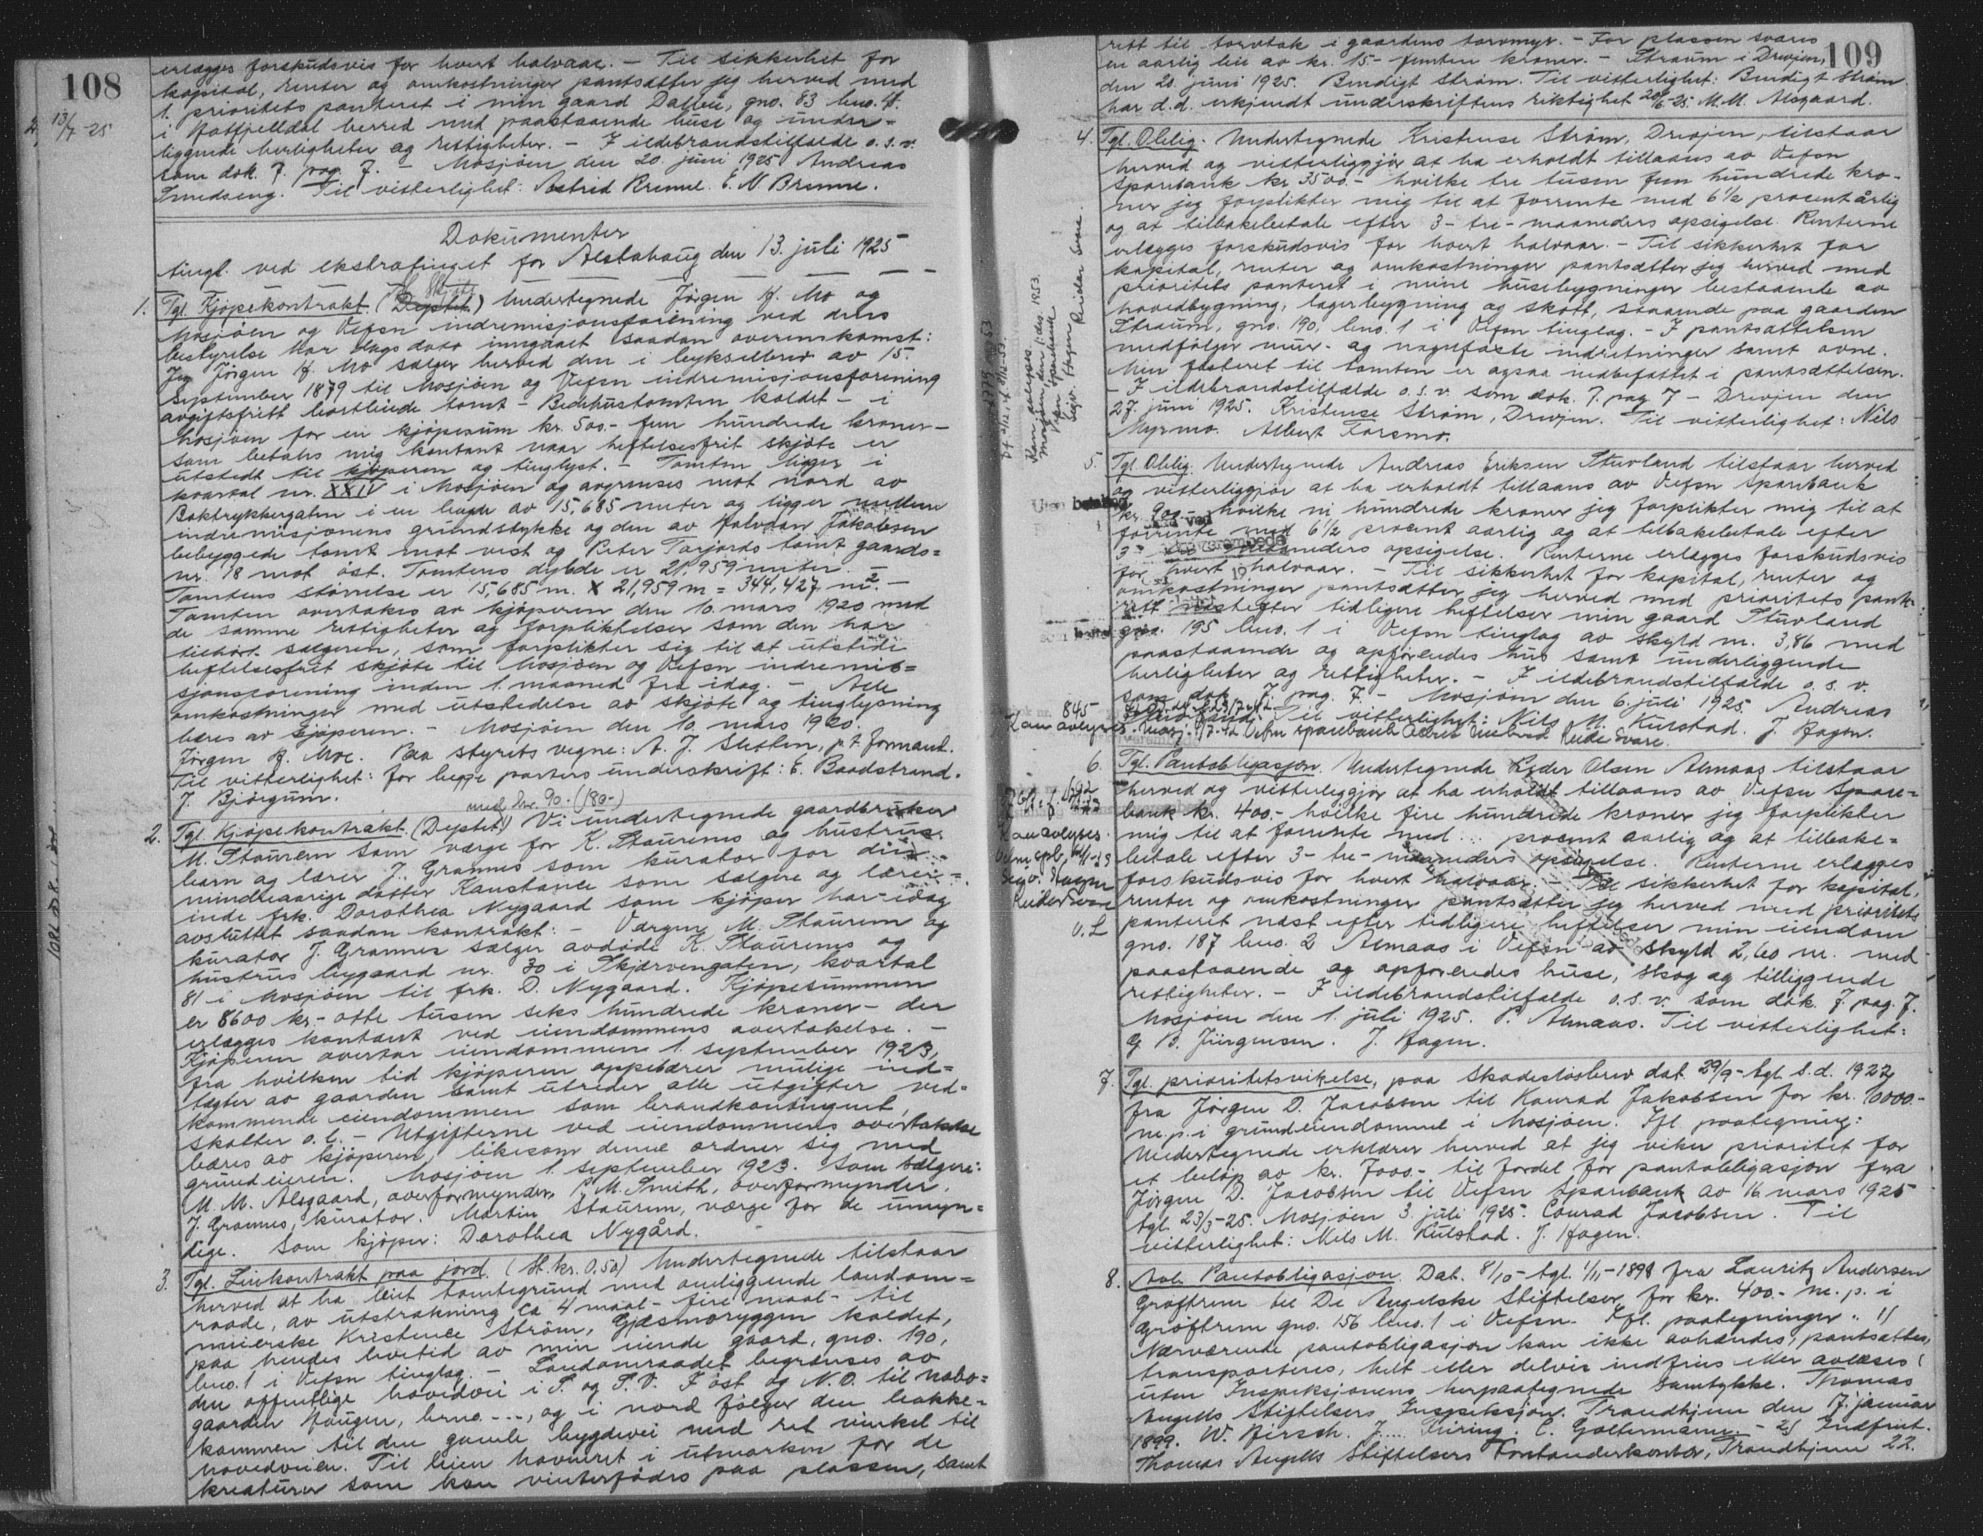 108
13/7-25
erlægges forskudsvis for hvert halvaar. - Til sikkerhet for
kapital, renter og omkostninger pantsætter jeg herved med
1. prioritets panteret i min gaard Dalbu, gno. 83 bno. 4.
i Hatfjelldal herred med paastaaende huse og under-
liggende herligheter og rettigheter. - I ildebrandstilfælde o.s.v.
som dok. 7. pag. 7. - Mosjøen den 20. juni 1925 Andreas
Smedseng. Til vitterlighet: Astrid Bremne. E. N. Bremne.
Dokumenter
tingl. ved ekstratinget for Alstahaug den 13. juli 1925
1. Tgl. Kjøpekontrakt Undertegnede Jørgen H. Mo og
Mosjøen og Vefsn indremisjonsforening ved dens
bestyrelse har dags dato inngaaet saadan overenskomst:
Jeg Jørgen H. Mo sælger herved den i bykselbrev av 15.
September 1879 til Mosjøen og Vefsn indremisjonsforening
avgiftsfritt bortleiede tomt - Bedehustomten kaldet - i
Mosjøen for en kjøpesum kr. 500.- fem hundrede kroner -
som betales mig kontant naar heftelsesfrit skjøte er
utstedt til kjøperen og tinglyst. - Tomten ligger i
kvartal nr. XXIV i Mosjøen og avgrenses mot nord av
Boktrykkergaten i en bredde av 15,685 meter og ligger mellem
indremisjonens grundstykke og den av Halvdan Jakobsen
bebyggede tomt mot vest og Peter Torjords tomt gaards-
nr. 18 mot øst. Tomtens dybde er 21,959 meter. -
Tomtens størrelse er 15,685 m. X 21,959 m = 344,427 m². -
Tomten overtakes av kjøperen den 10. mars 1920 med
de samme rettigheter og forpliktelser som den har
tilhørt sælgeren, som forplikter sig til at utstede
heftelsesfrit skjøte til Mosjøen og Vefsn indremis-
sjonsforening inden 1. maaned fra idag. - Alle
omkostninger med utstedelse av skjøte og tinglysning
bæres av kjøperen. - Mosjøen den 10. mars 1920.
Jørgen H. Moe. Paa styrets vegne: A. J. Stolen, p.t. formand.
Til vitterlighet: for begge parters underskrift: E. Baadstrand.
J. Bjørgum.
med kr. 90.- (180.-)
2. Tgl. Kjøpekontrakt. (Dejstet) Vi undertegnede gaardbruker
M. Staurem som værge for K. Staurems og hustrus
barn og lærer J. Grannes som kurator for den
mindreaarige datter Konstance som sælgere og lærer-
inde frk. Dorothea Nygaard som kjøper har idag
avsluttet saadan kontrakt: - Værgen M. Staurem og
kurator J. Grannes sælger avdøde K. Staurems og
hustrus bygaard nr. 30 i Skjærvengaten, kvartal
81 i Mosjøen til frk. D. Nygaard. Kjøpesummen
er 8600 kr - otte tusen seks hundrede kroner - der
erlægges kontant ved eiendommens overtakelse. -
Kjøperen overtar eiendommen 1. september 1923,
fra hvilken tid kjøperen oppebærer mulige ind-
tægter av gaarden samt utreder alle utgifter ved-
kommende eiendommen som brandkontingent,
skatter o.l. - Utgifterne ved eiendommens overtakelse
bæres av kjøperen, likesom denne ordner sig med
grundeieren. Mosjøen 1. september 1923. Som sælgere:
M. M. Alsgaard, overformynder, P. M. Smith, overformynder.
J. Grannes, kurator. Martin Staurem, værge for de umyn-
dige. Som kjøper: Dorothea Nygård.
3. Tgl. Leiekontrakt paa jord. (St. kr. 0.50) Undertegnede tilstaar
herved at ha leiet tomtegrund med omliggende landom-
raade, av utstrækning ca 4 maal - fire maal - til
meierske Kristense Strøm, Gjæsmoryggen kaldet,
paa hendes livetid av min eiende gaard, gno. 190,
bno. 1 i Vefsn tinglag. - Landomraadet begrænses av
den offentlige hovedvei i S. og S.V. I øst og N.Ø. til nabo-
gaarden Haugen, bno. ..., og i nord følger den bakke-
kammen til den gamle bygdevei med ret vinkel til
hovedveien. Til leien havneret i utmarken for de
kreaturer som kan vinterfødes paa plassen, samt
109
rett til torvtak i gaardens torvmyr. - For plassen svares
en aarlig leie av kr. 15.- femten kroner. - Straum i Drevjen,
den 20 juni 1925. Bendigt Strøm. Til vitterlighet: Bendigt Strøm
har d.d. erkjendt underskriftens riktighet 20/6-25 M.M. Alsgaard.
4. Tgl. Oblig. Undertegnede Kristense Strøm, Drevjen, tilstaar
herved og vitterliggjør at ha erholdt tillaans av Vefsn
Sparebank kr. 3500.- hvilke tre tusen fem hundrede kro-
ner jeg forplikter mig til at forrente med 6 1/2 procent årlig
og at tilbakebetale efter 3- tre- maaneders opsigelse. Renterne
erlægges forskudsvis for hvert halvaar. - Til sikkerhet for
kapital, renter og omkostninger pantsætter jeg herved med
prioritets panteret i mine husebygninger bestaaende av
hovedbygning, lagerbygning og skott, staaende paa gaarden
Straum, gno. 190, bno. 1 i Vefsn tinglag. - I pantsættelsen
medfølger mur- og naglefaste indretninger samt ovne.
Min festeret til tomten er ogsaa indbefattet i pantsættelsen.
- I ildebrandstilfælde o.s.v. som dok. 7. pag 7 - Drevjen den
27 juni 1925. Kristense Strøm, Drevjen. Til vitterlighet: Nils
Myrmo. Albert Forsmo.
Kan avlyses.
Mosjøen, den 1. des. 1953.
Vefsn sparebank
Sigv. Hagen Reidar Svare.
5. Tgl. Oblig. Undertegnede Andreas Eriksen Stuvland tilstaar herved
og vitterliggjør at ha erholdt tillaans av Vefsn Sparebank
kr. 900.- hvilke ni hundrede kroner jeg forplikter mig til at
forrente med 6 1/2 procent aarlig og at tilbakebetale efter
3- maaneders opsigelse. Renterne erlægges forskudsvis
for hvert halvaar. - Til sikkerhet for kapital, renter og
omkostninger pantsætter jeg herved med prioritets pante-
rett næstefter tidligere heftelser min gaard Stuvland
gno. 195 bno. 1 i Vefsn tinglag av skyld m. 3,86 med
paastaaende og opførendes hus samt underliggende
herligheter og rettigheter. - I ildebrandstilfælde o.s.v.
som dok. 7. pag. 7 - Mosjøen den 6. juli 1925 Andreas
Til vitterlighet: Nils M. Kulstad. J. Hagen.
845
Kan avlyses. Mosj. Vefsn sparebank Reidar Svare.
6. Tgl. Pantobligasjon. Undertegnede Peder Olsen Almaas tilstaar
herved og vitterliggjør at ha erholdt tillaans av Vefsn Spare-
bank kr. 400.- hvilke fire hundrede kroner jeg forplikter
mig til at forrente med ... procent aarlig og at tilbake-
betale efter 3- tre- maaneders opsigelse. Renterne erlægges
forskudsvis for hvert halvaar. - Til sikkerhet for kapital,
renter og omkostninger pantsætter jeg herved med prioritets
panteret næst efter tidligere heftelser min eiendom
gno. 187 bno. 2 Almaas i Vefsn av skyld 2,60 m. med
paastaaende og opførendes huse, skog og tilliggende
rettigheter. - I ildebrandstilfælde o.s.v. som dok 7. pag. 7.
Mosjøen den 1. juli 1925. P. Almaas. Til vitterlighet:
G. B. Jürgensen. J. Hagen.
Kan avlyses.
Sigv. Hagen
Reidar Svare
7. Tgl. prioritetsvikelse, paa Skadesløsbrev dat. 29/9- tgl. s.d. 1922
fra Jørgen D. Jacobsen til Konrad Jakobsen for kr. 10000.-
m.p. i grundeiendommene i Mosjøen. Ifl. paategning:
Undertegnede erklærer herved at jeg viker prioritet for
et beløp av kr. 7000.- til fordel for pantobligasjon fra
Jørgen D. Jacobsen til Vefsn Sparebank av 16. mars 1925
tgl. 23/3-25. Mosjøen 3. juli 1925. Conrad Jacobsen. Til
vitterlighet: Nils M. Kulstad. J. Hagen.
8. Avl. Pantobligasjon. Dat. 8/10- tgl. 1/11-1898 fra Lauritz Andersen
Grøftrem til De Angelske Stiftelser for kr. 400.- m.p. i
Grøftrem gno. 156 bno. 1 i Vefsn. Ifl. paategninger: 1)
Nærværende pantobligasjon kan ikke avhændes, pantsættes,
transporteres, helt eller delvis indfries eller avlæses
uten Inspeksjonens herpaategnede samtykke. Thomas
Angells Stiftelsers Inspeksjon. Trondhjem den 17. januar
1899. W. Hirsch. J.... C. Goltermann - 2) Indfriet.
Thomas Angells Stiftelsers Forstanderkontor, Trondhjem 22.